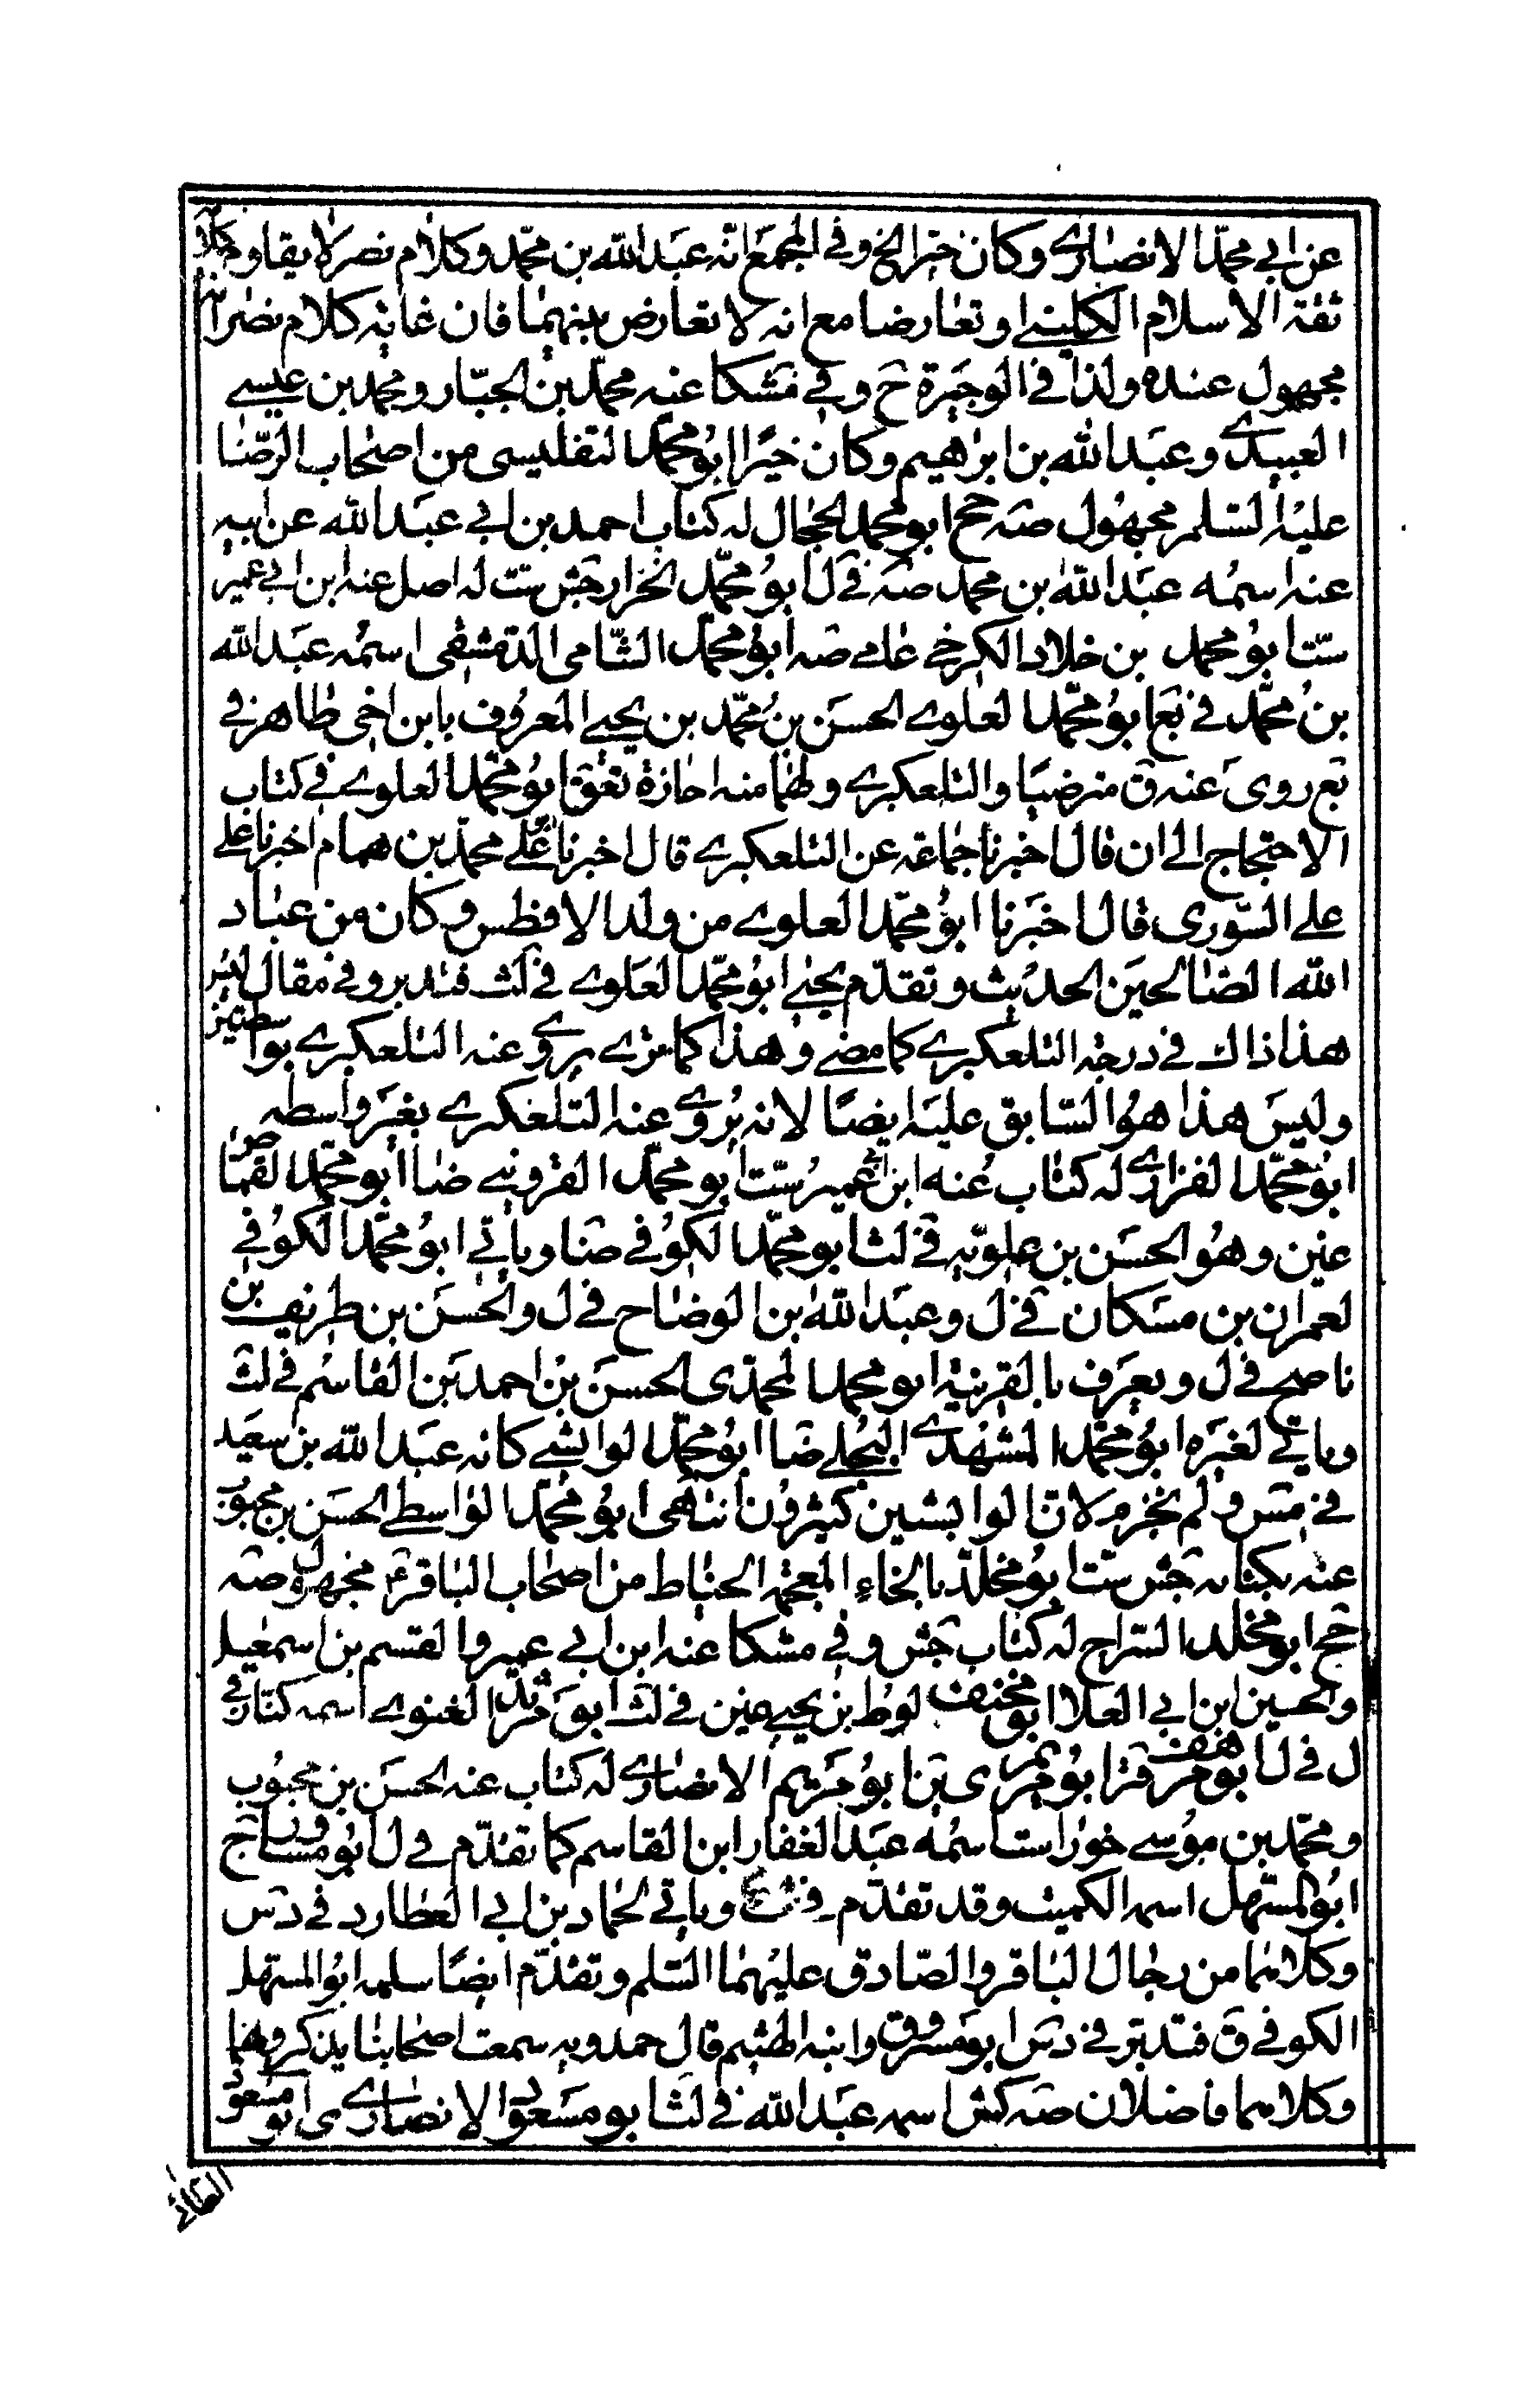 عن ابي محمد الانصاري وكان خيرا الخ وفي المجمع انه عبد الله بن محمد وكلام نصر لا يقاوم كلام
ثقة الاسلام الكليني او تعارضا مع انه لا تعارض بينهما فان غايه كلام نصر انه
مجهول عنده ولذا في الوجيزة ح وفي مشكا عنه محمد بن الجبار ومحمد بن عيسى
العبيدي وعبد الله بن ابراهيم وكان خيرا ابو محمد التفليسي من اصحاب الرضا
عليه السلم مجهول صه جح ابو محمد الحجال له كتاب احمد بن ابي عبد الله عن ابيه
عنه اسمه عبد الله بن محمد صه في ل ابو محمد الخزار جش ست له اصل عنه ابن ابي عمير
ست ابو محمد بن خلاد الكرخي عامي صه ابو محمد الشامي الدمشقي اسمه عبد الله
بن محمد في تع ابو محمد العلوي الحسن بن محمد بن يحيى المعروف بابن اخي طاهر في
تع روى عنه ق مترضيا والتلعكبري ولهما منه اجازة تعق ابو محمد العلوي في كتاب
الاحتجاج الى ان قال اخبرنا جماعة عن التلعكبري قال اخبرنا علي محمد بن همام اخبرنا علي
علي السوري قال اخبرنا ابو محمد العلوي من ولد الافطس وكان من عباد
الله الصالحين الحديث وتقدم يحيى ابو محمد العلوي في لث فتدبر وفي مقال ليس
هذا ذاك في درجة التلعكبري كما مضى وهذا كما ترى يروي عنه التلعكبري بواسطتين
وليس هذا هو السابق عليه ايضا لانه يروي عنه التلعكبري بغير واسطه
ابو محمد الفزاري له كتاب عنه ابن ابي عمير ست ابو محمد القزويني ضا ابو محمد القماص
عين وهو الحسن بن علويه في لث ابو محمد الكوفي ضا وياتي ابو محمد الكوفي
لعمران بن مسكان في ل وعبد الله بن الوضاح في ل والحسن بن طريف بن
ناصح في ل ويعرف بالقرينة ابو محمد المحمدي الحسن بن احمد بن القاسم في لث
وياتي لغيره ابو محمد المشهدي البجلي ضا ابو محمد الوابشي كانه عبد الله بن سعيد
في مش ولم نجزم لان الوابشين كثيرون انتهى ابو محمد الواسطي الحسن بن محبوب
عنه بكتابه جش ست ابو مخلد بالخاء المعجمه الحناط من اصحاب الباقر ع مجهول صه
جح ابو مخلد السراج له كتاب جش وفي مشكا عنه ابن ابي عمير والقسم بن اسمعيل
والحسين ابن ابي العلا ابو مخنف لوط بن يحيى عين في لث ابو مرثد الغنوي اسمه كناز في
ل في ل ابو مرهف قر ابو مريم ى ين ابو مريم الانصاري له كتاب عنه الحسن بن محبوب
ومحمد بن موسى خوراست اسمه عبد الغفار ابن القاسم كما تقدم في ل ابو مساور ج
ابو المستهل اسمه الكميت وقد تقدم في وياتي لحماد بن ابي العطارد في دش
وكلاهما من رجال الباقر والصادق عليهما السلم وتقدم ايضا سلمه ابو المستهل
الكوفي ق فتدبر في دش ابو مسروق وابنه الهثيم قال حمدويه سمعت اصحابنا يذكرونهما
وكلاهما فاضلان صه كش اسمه عبد الله في لث ابو مسعود الانصاري ى ابو مسعود
الطائي